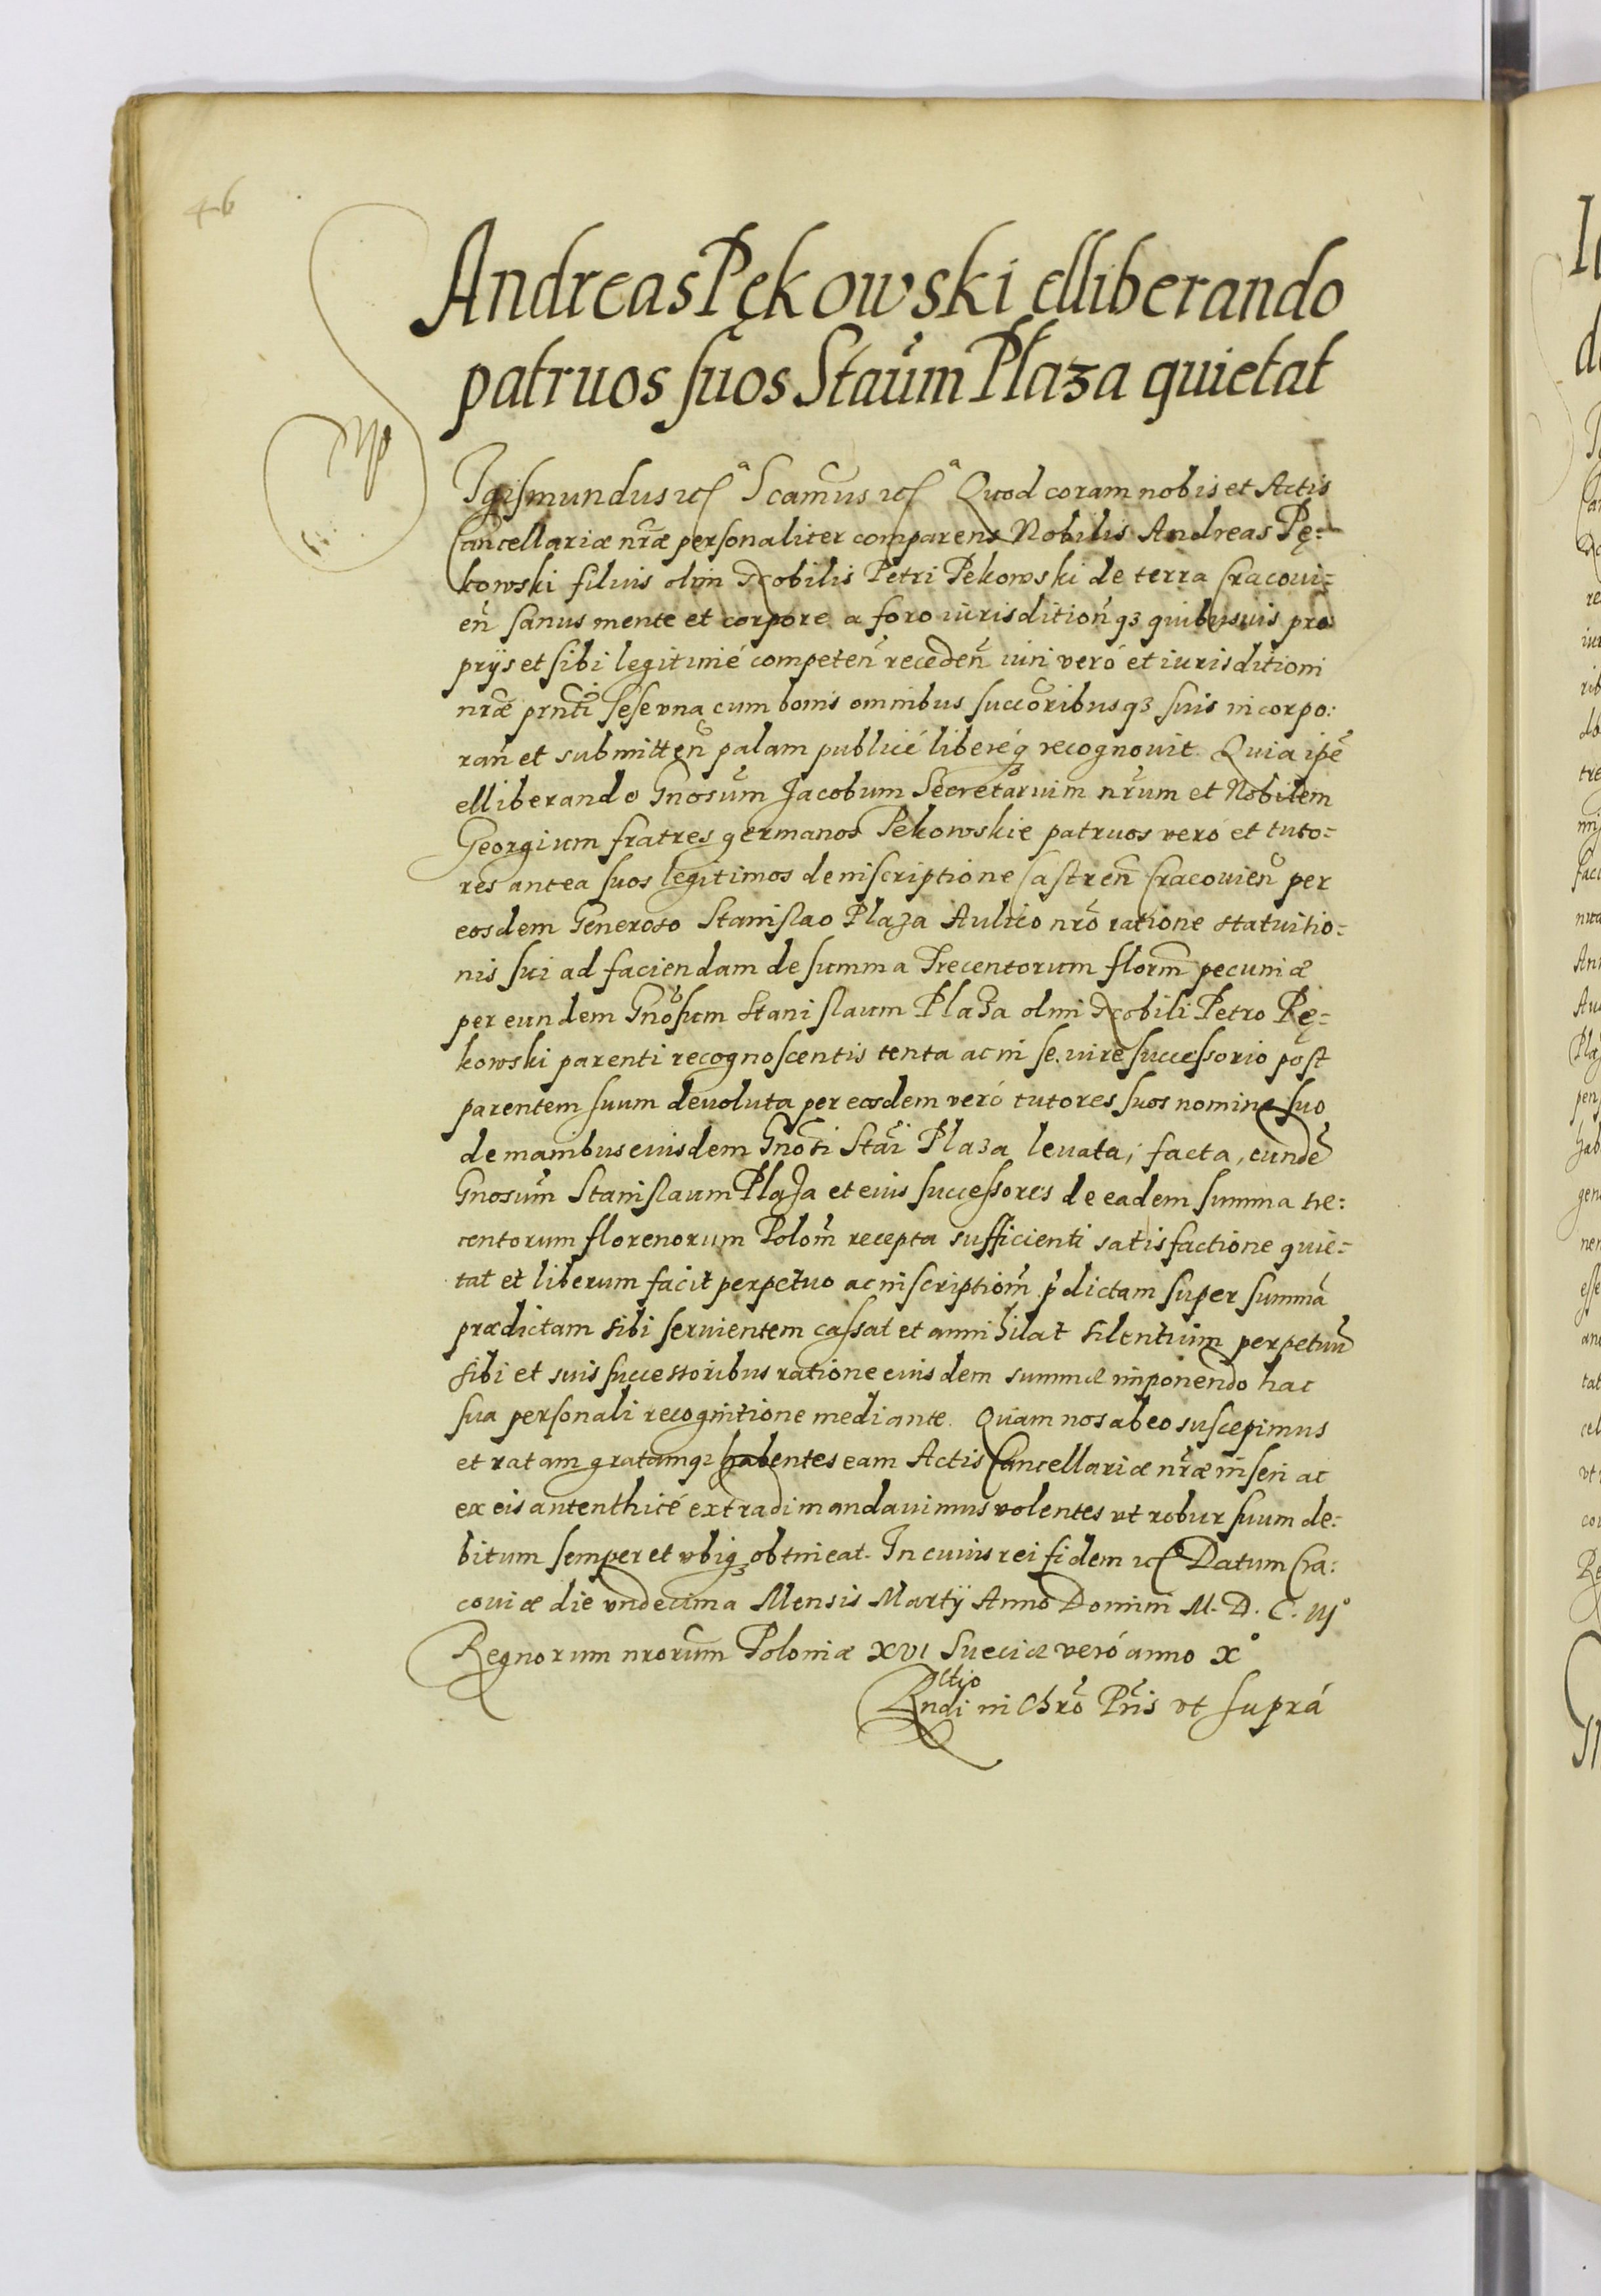 46
Andreas Pękowski elliberando
patruos suos Staũm Plaza quietat
Igismundus etcͣ Scamus etcͣ Quod coram nobis et Actis
Cancellariæ nr̃æ personaliter comparens Nobilis Andreas Pę-
kowski filius olim Nobilis Petri Pekowski de terra Cracoui-
eñ sanus mente et corpore a foro iurisditioñqꝫ quibusuis pro
prijs et sibi legitimé competeñ recedeñ iuri veró et iurisditioni
nr̃æ pr̃nti sese vna cum bonis omnibus succ̃oribusqꝫ suis incorpo:
rañ et submitteñ palam publicé liberéqꝫ recognouit. Quia ip̃e
elliberando Gnosũm Jacobum Secretarium nr̃um et Nobilem
Georgium fratres germanos Pekowskie patruos veró et tuto-
res antea suos legitimos de inscriptione Castreñ Cracouieñ per
eosdem Generoso Stanislao Plaza Aulico nr̃o ratione statuitio-
nis sui ad faciendam de summa Trecentorum florm̃ pecuniæ
per eundem Gnõsum Stanislaum Plaza olim Nobili Petro Pę-
kowski parenti recognoscentis tenta ac in se iure successorio post
parentem suum deuoluta per eosdem veró tutores suos nomine suo
de manibus eiusdem Gnõsi Stãi Plaza leuata, facta, eundẽ
Gnosũm Stanislaum Plaza et eius successores de eadem summa tre:
centorum florenorum Polom̃ recepta sufficienti satisfactione quie-
tat et liberum facit perpetuo ac inscriptiom̃ p̃dictam super summã
prædictam sibi seruientem cassat et annihilat silentium perpetuũ
sibi et suis successoribus ratione eiusdem summæ imponendo hac
sua personali recognitione mediante. Quam nos ab eo suscepimus
et ratam gratamqꝫ habentes eam Actis Cancellariæ nr̃æ inseri ac
ex eis autenthicé extradi mandauimus volentes vt robur suum de:
bitum semper et vbiqꝫ obtineat. In cuius rei fidem etc Datum Cra:
couiæ die vndecima Mensis Martij Anno Domini M. D. C. iijº
Regnorum nrorũm Poloniæ XVI Sueciæ veró anno Xº
Rltio
Rndi in Chrõ Pr̃is vt suprá